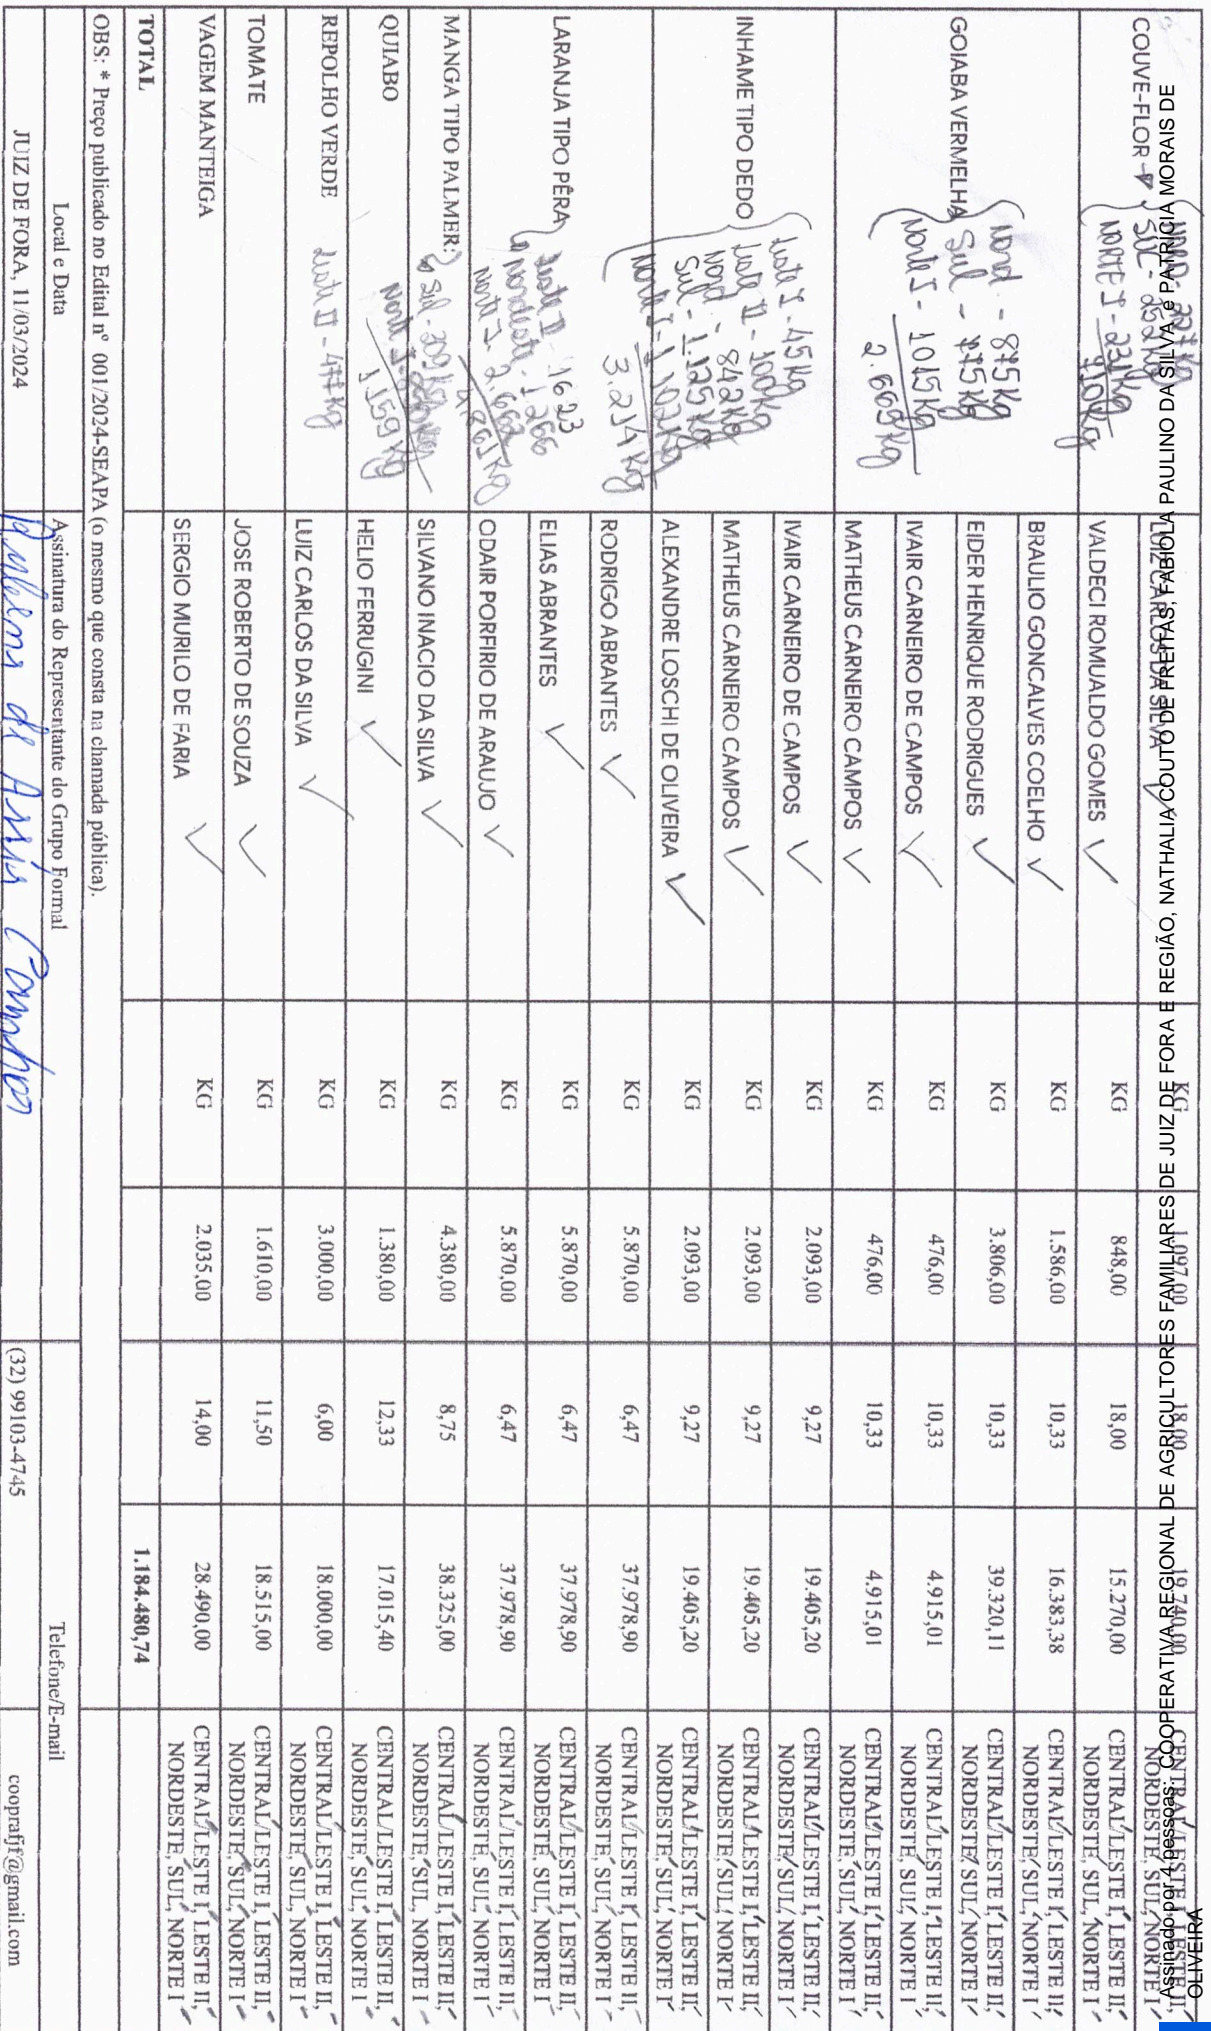 COUVE-FLOR
SUL - 252kg
NORTE I - 231kg
LUIZ CARLOS DA SILVA KG 1.097,00 18,00 19.740,00 CENTRAL, LESTE I, LESTE II,
NORDESTE, SUL, NORTE I
VALDECI ROMUALDO GOMES KG 848,00 18,00 15.270,00 CENTRAL, LESTE I, LESTE II,
NORDESTE, SUL, NORTE I
GOIABA VERMELHA
Nord - 875kg
Sul - 775kg
Norte I - 1015kg
2.665kg
BRAULIO GONCALVES COELHO KG 1.586,00 10,33 16.383,38 CENTRAL, LESTE I, LESTE II,
NORDESTE, SUL, NORTE I
EIDER HENRIQUE RODRIGUES KG 3.806,00 10,33 39.320,11 CENTRAL, LESTE I, LESTE II,
NORDESTE, SUL, NORTE I
IVAIR CARNEIRO DE CAMPOS KG 476,00 10,33 4.915,01 CENTRAL, LESTE I, LESTE II,
NORDESTE, SUL, NORTE I
MATHEUS CARNEIRO CAMPOS KG 476,00 10,33 4.915,01 CENTRAL, LESTE I, LESTE II,
NORDESTE, SUL, NORTE I
INHAME TIPO DEDO
Leste I - 45kg
Leste II - 100kg
Nord - 842kg
Sul - 1.125kg
Norte I - 1.102kg
3.214kg
IVAIR CARNEIRO DE CAMPOS KG 2.093,00 9,27 19.405,20 CENTRAL, LESTE I, LESTE II,
NORDESTE, SUL, NORTE I
MATHEUS CARNEIRO CAMPOS KG 2.093,00 9,27 19.405,20 CENTRAL, LESTE I, LESTE II,
NORDESTE, SUL, NORTE I
ALEXANDRE LOSCHI DE OLIVEIRA KG 2.093,00 9,27 19.405,20 CENTRAL, LESTE I, LESTE II,
NORDESTE, SUL, NORTE I
LARANJA TIPO PÊRA
Leste II - 1623
Nordeste - 1266
Norte I -
RODRIGO ABRANTES KG 5.870,00 6,47 37.978,90 CENTRAL, LESTE I, LESTE II,
NORDESTE, SUL, NORTE I
ELIAS ABRANTES KG 5.870,00 6,47 37.978,90 CENTRAL, LESTE I, LESTE II,
NORDESTE, SUL, NORTE I
ODAIR PORFIRIO DE ARAUJO KG 5.870,00 6,47 37.978,90 CENTRAL, LESTE I, LESTE II,
NORDESTE, SUL, NORTE I
MANGA TIPO PALMER: SILVANO INACIO DA SILVA KG 4.380,00 8,75 38.325,00 CENTRAL, LESTE I, LESTE II,
NORDESTE, SUL, NORTE I
Sul - 209kg
1.159kg
QUIABO HELIO FERRUGINI KG 1.380,00 12,33 17.015,40 CENTRAL, LESTE I, LESTE II,
NORDESTE, SUL, NORTE I
REPOLHO VERDE Leste II - 477kg LUIZ CARLOS DA SILVA KG 3.000,00 6,00 18.000,00 CENTRAL, LESTE I, LESTE II,
NORDESTE, SUL, NORTE I
TOMATE JOSE ROBERTO DE SOUZA KG 1.610,00 11,50 18.515,00 CENTRAL, LESTE I, LESTE II,
NORDESTE, SUL, NORTE I
VAGEM MANTEIGA SERGIO MURILO DE FARIA KG 2.035,00 14,00 28.490,00 CENTRAL, LESTE I, LESTE II,
NORDESTE, SUL, NORTE I
TOTAL 1.184.480,74
OBS: * Preço publicado no Edital nº 001/2024-SEAPA (o mesmo que consta na chamada pública).
Local e Data Assinatura do Representante do Grupo Formal Telefone/E-mail
JUIZ DE FORA, 11/03/2024 (32) 99103-4745 cooprafjf@gmail.com
Assinado por 4 pessoas: COOPERATIVA REGIONAL DE AGRICULTORES FAMILIARES DE JUIZ DE FORA E REGIÃO, NATHALIA COUTO DE FREITAS, FABIOLA PAULINO DA SILVA e PATRICIA MORAIS DE
OLIVEIRA